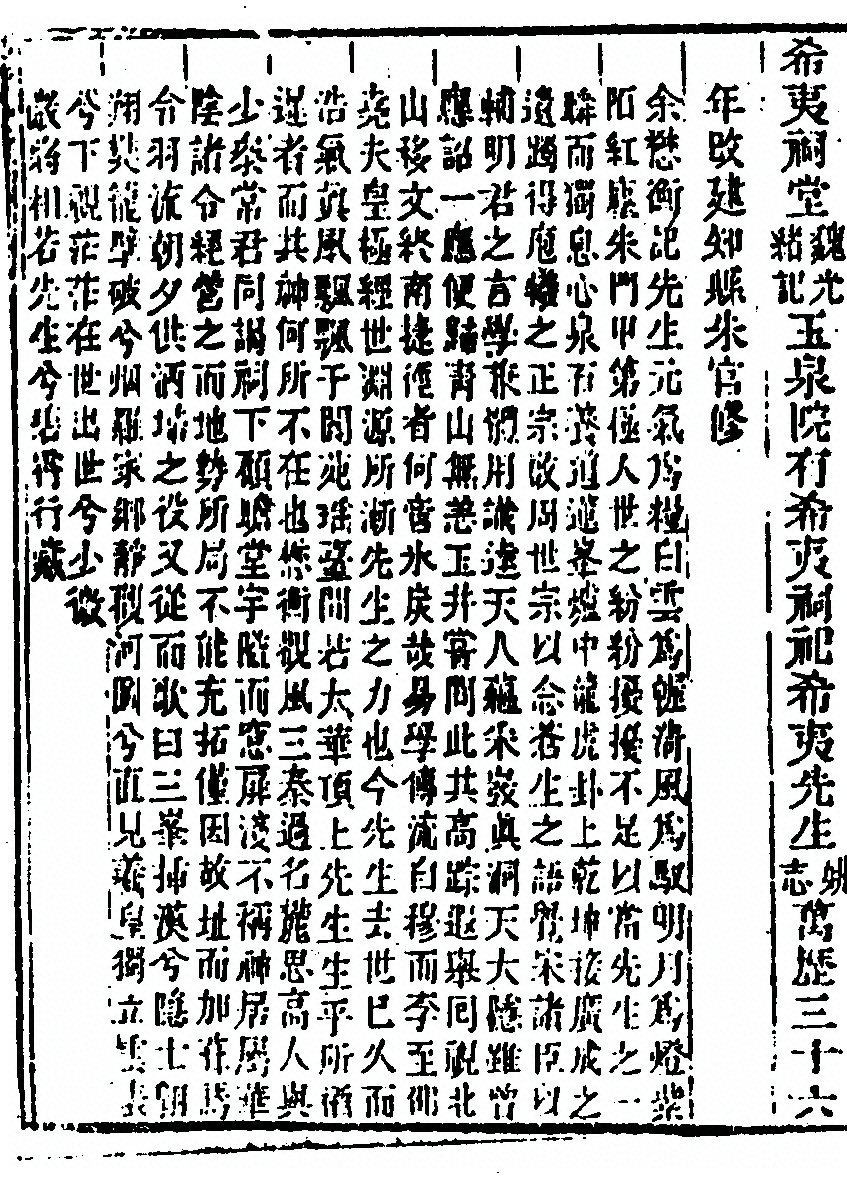 希夷祠堂魏允粘記玉泉院有希夷祠祀希夷先生姚志萬歷三十六
年改建知縣朱官修
余懋衡記先生元氣爲糧白雲爲幄淸風爲馭明月爲燈紫
陌紅塵朱門甲第極人世之紛紛擾擾不足以當先生之一
睇而獨息心泉石養道蓮峯爐中龍虎卦上乾坤接廣成之
遺躅得庖犧之正宗故周世宗以念蒼生之語學宋諸臣以
輔明君之言學業網用識達天人蘊采巖眞洞天大隱雖曾
應詔一應便歸靑山無恙玉井嘗問此其高踪遐舉囘視北
山移文終南捷徑者何啻氷炭哉易學傳流自穆而李至邵
堯夫皇極經世淵源所漸先生之力也今先生去世已久而
浩氣眞風飄飄于閬苑瑶臺間若太華頂上先生生平所遊
逞者而其神何所不在也懋衡觀風三秦過名麓思高人與
少參常君同謁祠下顧瞻堂宇隘而窓屏淺不稱神居屬華
陰諸令經營之而地勢所局不能充拓僅因故址而加葺焉
令羽流朝夕供洒埽之役又從而歌曰三峯揷漢兮隱士翱
翔樊籠擘破兮烟蘿家鄉靜觀河圖兮直見羲皇獨立雲表
兮下視茫茫在世出世兮少微
歲將相若先生兮堪爲行藏